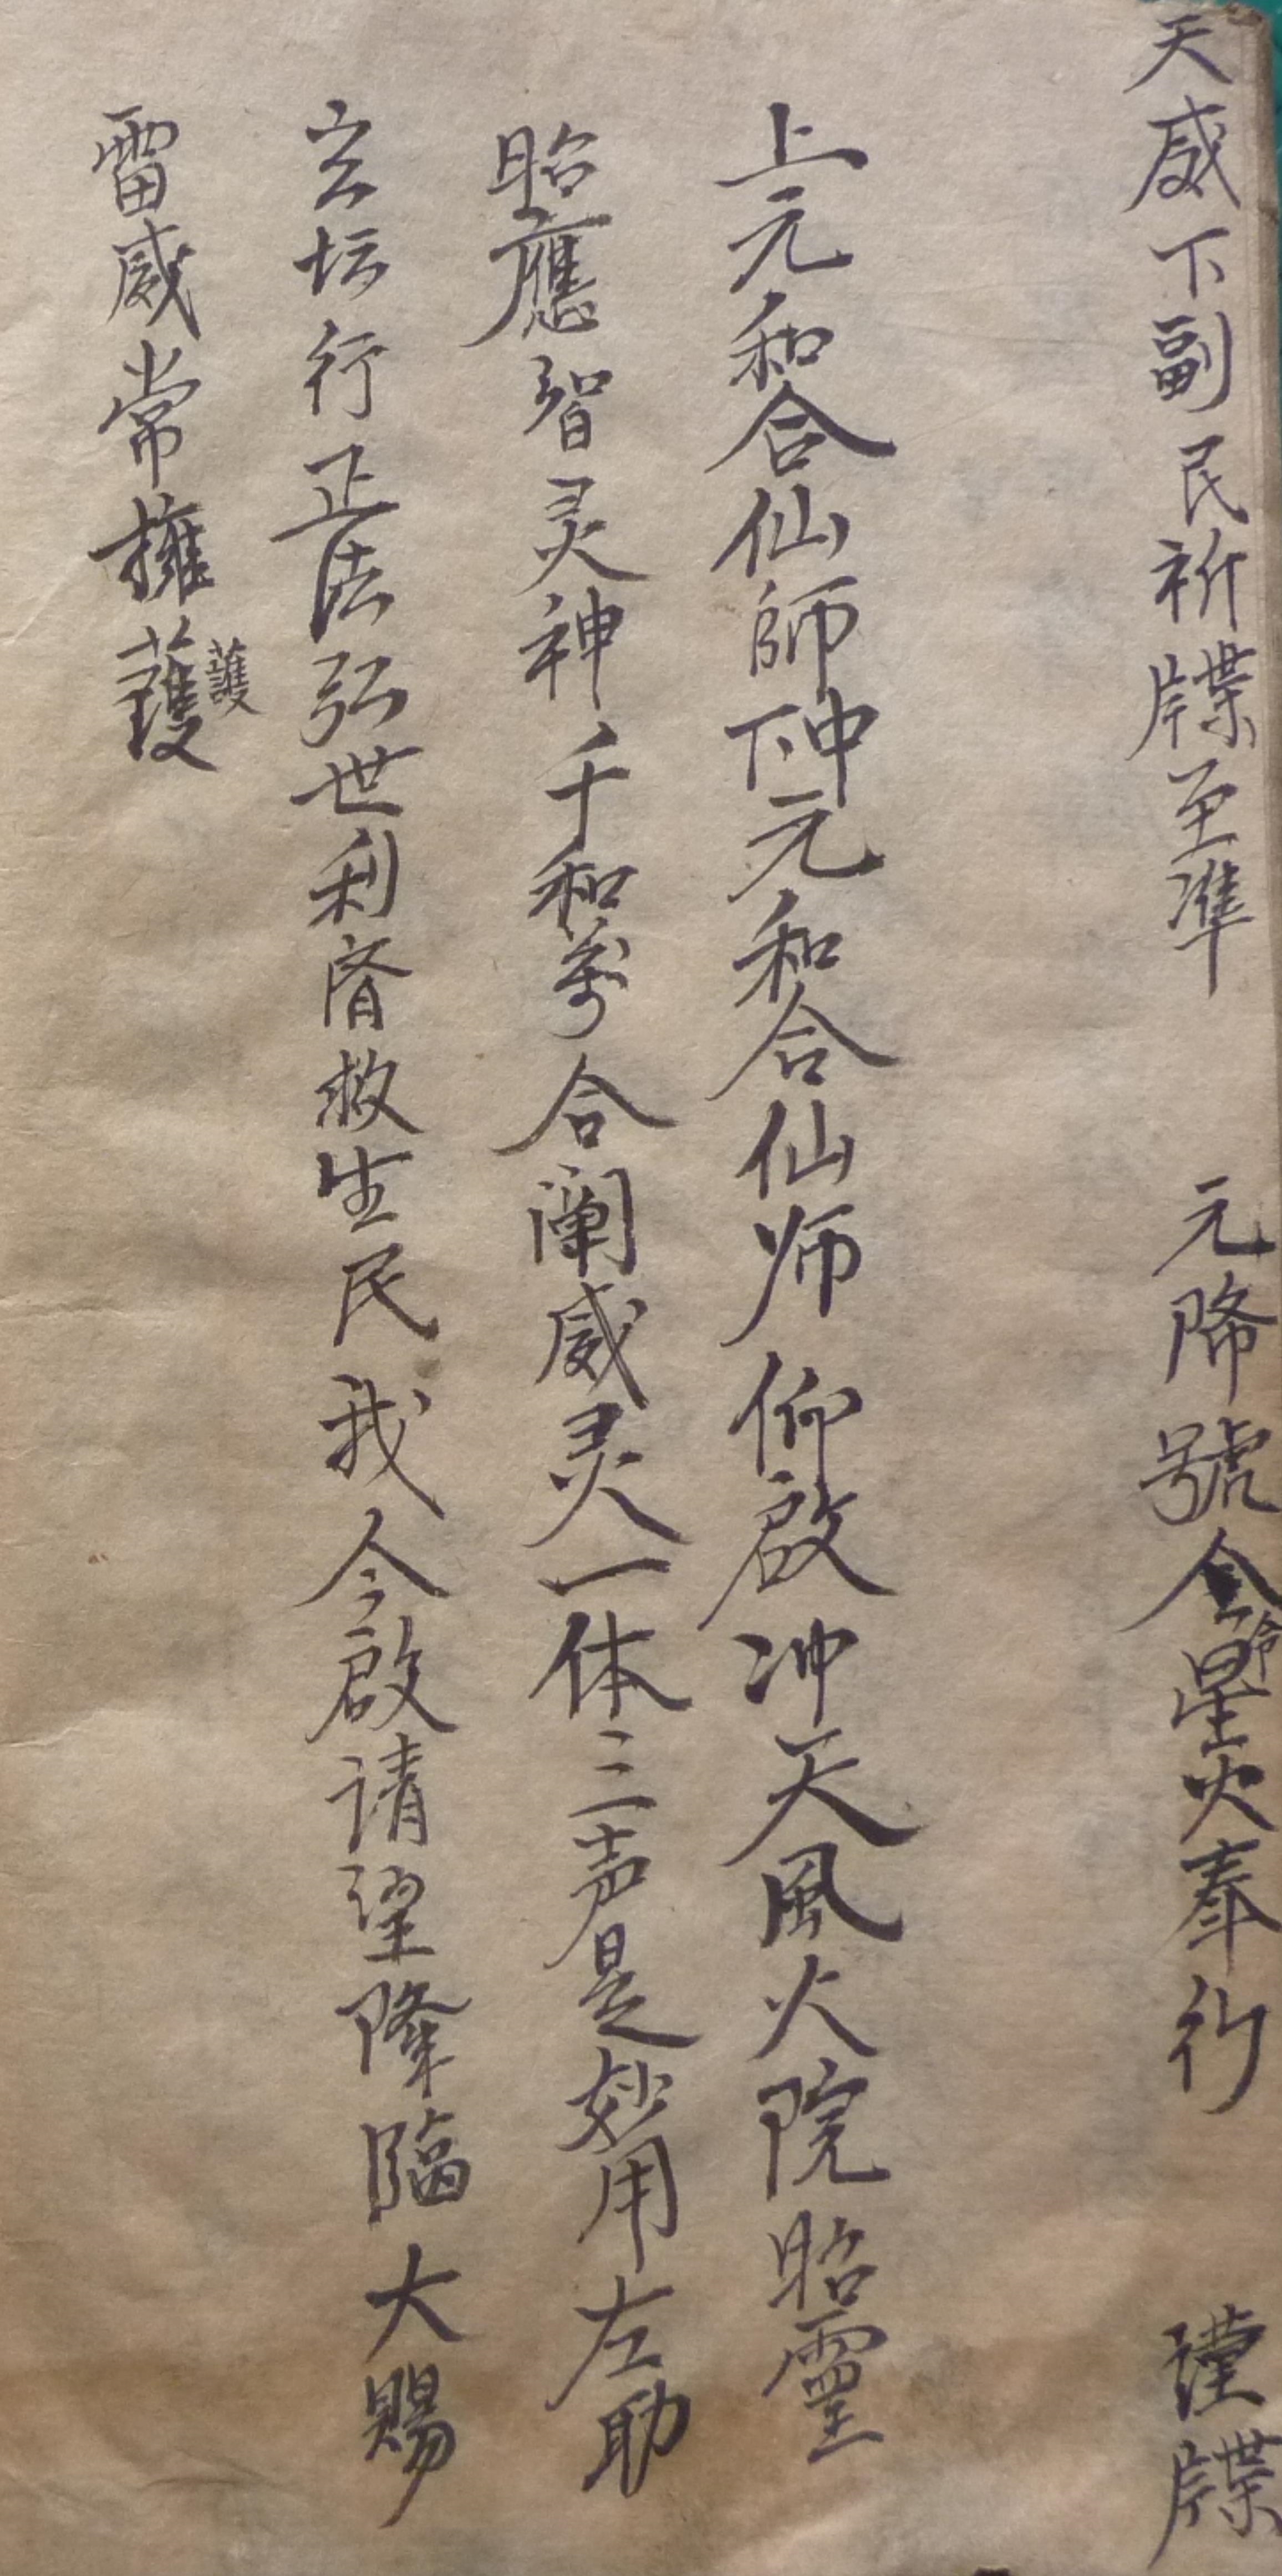 天威下副民祈牒至準 元降號令星火奉行 謹牒
上元和合仙師中下元和合仙师仰啟冲天風火院昭靈
昭應智灵神千和萬合阐威灵一体三声是妙用左助
玄坛行正法弘世利濟救生民我今啟请望降臨大赐
雷威常擁護
護